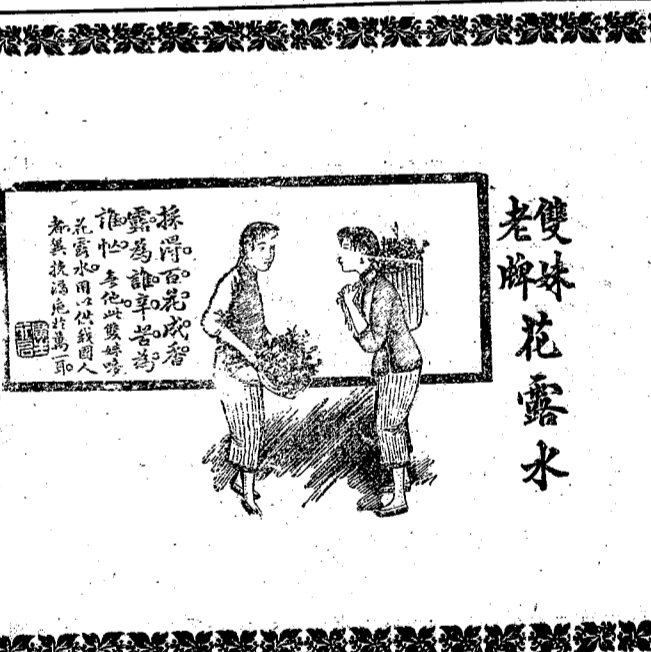 雙妹
老牌
花露水
採得百花成香
露為誰辛苦為
誰忙無他此雙妹嘜
花露水用以供我國人
者兼挽漏巵於萬一耳